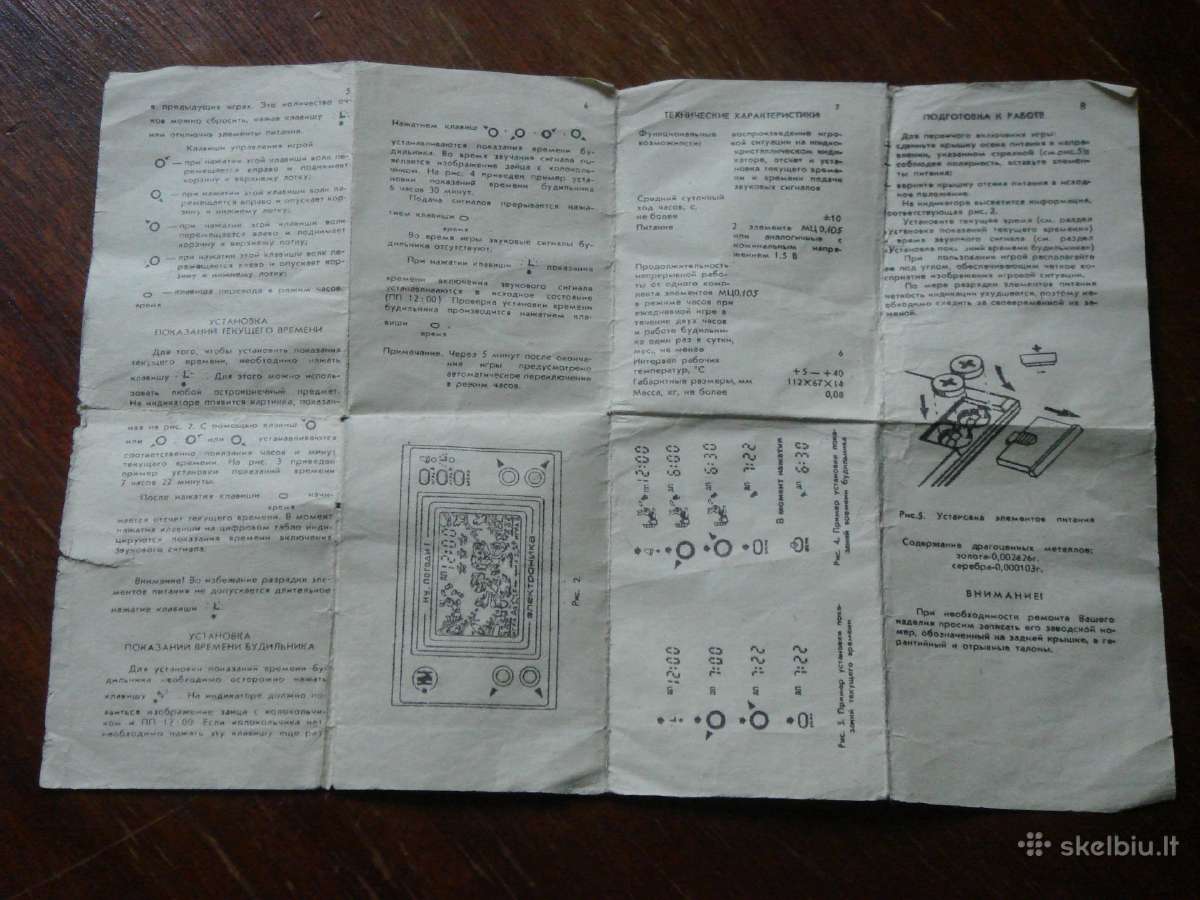 5
в предыдущих играх. Это количество оч-
ков можно сбросить, нажав клавишу
или отключив элементы питания.
Клавиши управления игрой
— при нажатии этой клавиши волк пе-
ремещается вправо и поднимает
корзину к верхнему лотку;
— при нажатии этой клавиши волк пе-
ремещается вправо и опускает кор-
зину к нижнему лотку;
— при нажатии этой клавиши волк
перемещается влево и поднимает
корзину к верхнему лотку;
— при нажатии этой клавиши волк пе-
ремещается влево и опускает кор-
зину к нижнему лотку;
— клавиша перевода в режим часов.
время
УСТАНОВКА
ПОКАЗАНИЙ ТЕКУЩЕГО ВРЕМЕНИ
Для того, чтобы установить показания
текущего времени, необходимо нажать
клавишу . Для этого можно исполь-
зовать любой остроконечный предмет.
На индикаторе появится картинка, показан-
ная на рис. 2. С помощью клавиш
или , или устанавливаются
соответственно показания часов и минут
текущего времени. На рис. 3 приведен
пример установки показаний времени
7 часов 22 минуты.
После нажатия клавиши начи-
время
нается отсчет текущего времени. В момент
нажатия клавиши на цифровом табло инди-
цируются показания времени включения
звукового сигнала.
Внимание! Во избежание разрядки эле-
ментов питания не допускается длительное
нажатие клавиши
УСТАНОВКА
ПОКАЗАНИЙ ВРЕМЕНИ БУДИЛЬНИКА
Для установки показаний времени бу-
дильника необходимо осторожно нажать
клавишу . На индикаторе должно по-
явиться изображение зайца с колокольчи-
ком и ПП 12:00. Если колокольчика нет,
необходимо нажать эту клавишу еще раз.
6
Нажатием клавиш
устанавливаются показания времени бу-
дильника. Во время звучания сигнала по-
является изображение зайца с колоколь-
чиком. На рис. 4 приведен пример уста-
новки показаний времени будильника
6 часов 30 минут.
Подача сигналов прерывается нажа-
тием клавиши
время
Во время игры звуковые сигналы бу-
дильника отсутствуют.
При нажатии клавиши показания
времени включения звукового сигнала
устанавливаются в исходное состояние
(ПП 12:00). Проверка установки времени
будильника производится нажатием кла-
виши
время
Примечание. Через 5 минут после оконча-
ния игры предусмотрено
автоматическое переключение
в режим часов.
ну, погоди!
12:00
электроника
Рис. 2.
7
ТЕХНИЧЕСКИЕ ХАРАКТЕРИСТИКИ
Функциональные возможности: воспроизведение игро-
вой ситуации на жидко-
кристаллическом инди-
каторе, отсчет и уста-
новка текущего време-
ни и времени подачи
звуковых сигналов
Средний суточный
ход часов, с,
не более ±10
Питание 2 элемента МЦ0,105
или аналогичные с
номинальным напря-
жением 1.5 В
Продолжительность
непрерывной рабо-
ты от одного комп-
лекта элементов МЦ0,105
в режиме часов при
ежедневной игре в
течение двух часов
и работе будильни-
ка один раз в сутки,
мес, не менее 6
Интервал рабочих
температур, °С +5 — +40
Габаритные размеры, мм 112×67×14
Масса, кг, не более 0,08
12:00
6:00
ДП 6:30
ДП 7:22
В момент нажатия
ДП 6:30
Рис. 4. Пример установки пока-
заний времени будильника
ДП 12:00
ДП 7:00
ДП 7:22
ДП 7:22
Рис. 3. Пример установки пока-
заний текущего времени
8
ПОДГОТОВКА К РАБОТЕ
Для первичного включения игры:
сдвиньте крышку отсека питания в направ-
лении, указанном стрелкой (см.рис.5)и
соблюдая полярность, вставьте элемен-
ты питания;
верните крышку отсека питания в исход-
ное положение.
На индикаторе высветится информация,
соответствующая рис. 2.
Установите текущее время (см. раздел
«Установка показаний текущего времени»)
и время звукового сигнала (см. раздел
«Установка показаний времени будильника»)
При пользовании игрой располагайте
ее под углом, обеспечивающим четкое вос-
приятие изображения игровой ситуации.
По мере разрядки элементов питания
четкость индикации ухудшается, поэтому не-
обходимо следить за своевременной их за-
меной.
Рис.5. Установка элементов питания
Содержание драгоценных металлов:
золота-0,002826г.
серебра-0,000103г.
ВНИМАНИЕ!
При необходимости ремонта Вашего
изделия просим записать его заводской но-
мер, обозначенный на задней крышке, в га-
рантийный и отрывные талоны.
skelbiu.lt